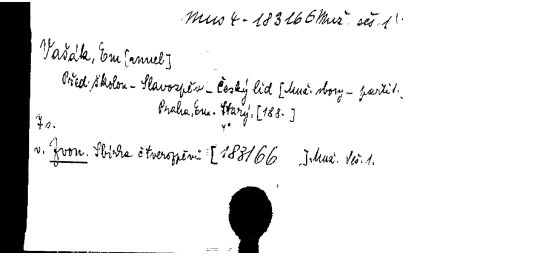 Mus 4 - 183166 Muž. seš. 1.
Vašák, Em[anuel]
Před školou - Slavozpěv - Český lid [Muž. sbory - partit.
Praha, Em. Starý. [188. ]
7 s.
v. Zvon. Sbírka čtverozpěvů [183166 ]. Muž. Seš. 1.